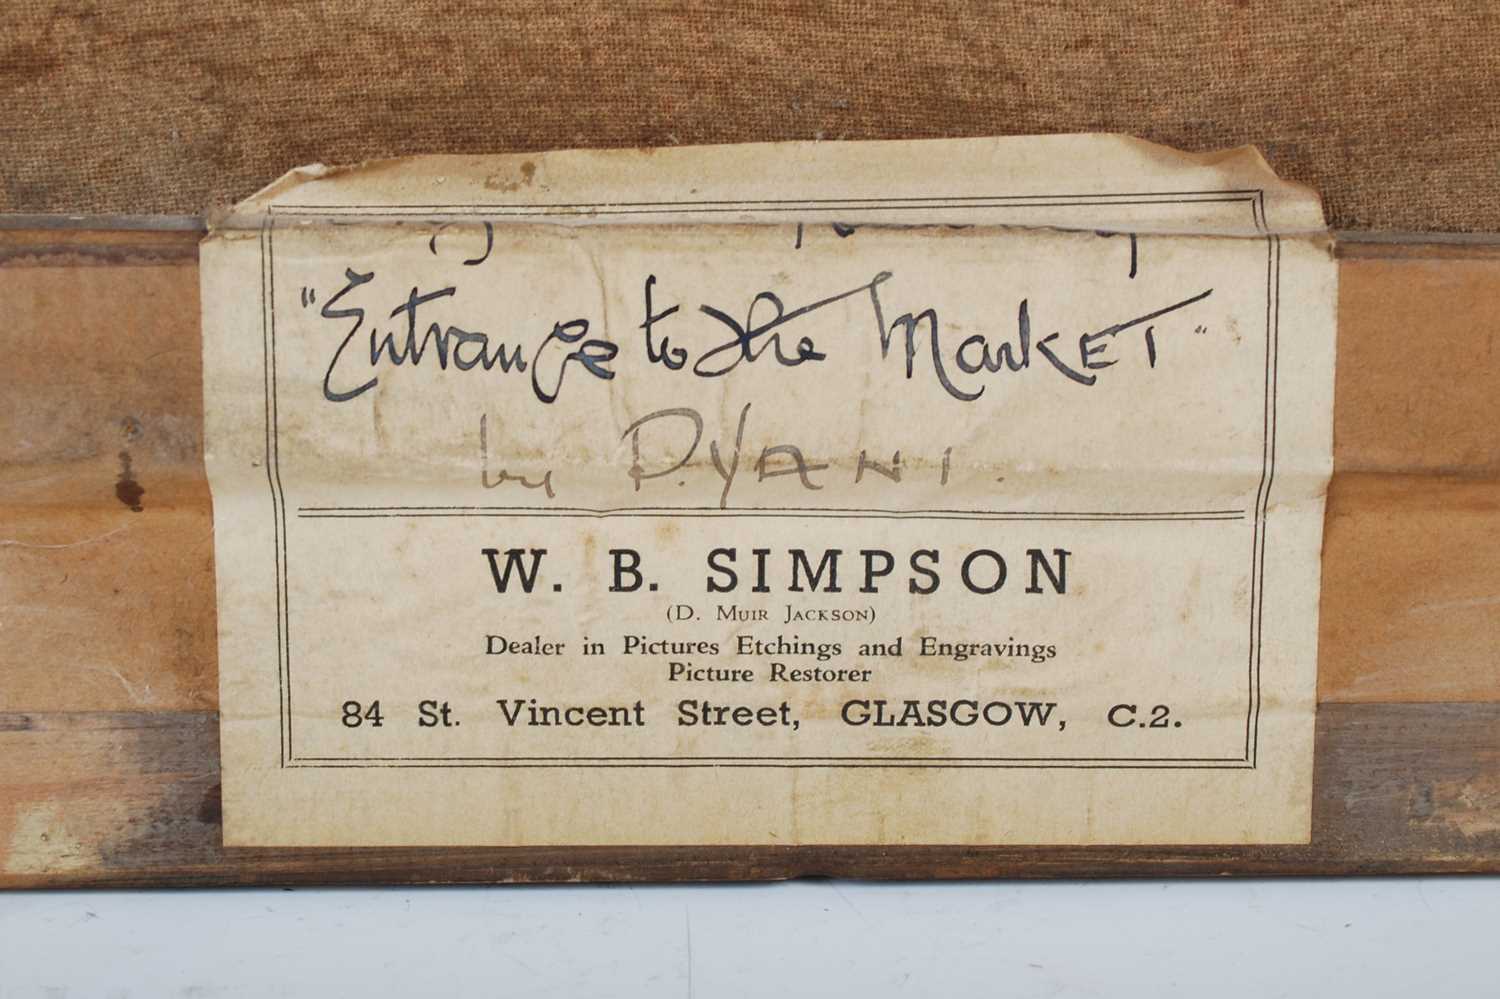 "Entrance to the Market"
by P. YANI.
W. B. SIMPSON
(D. Muir Jackson)
Dealer in Pictures Etchings and Engravings
Picture Restorer
84 St. Vincent Street, GLASGOW, C.2.